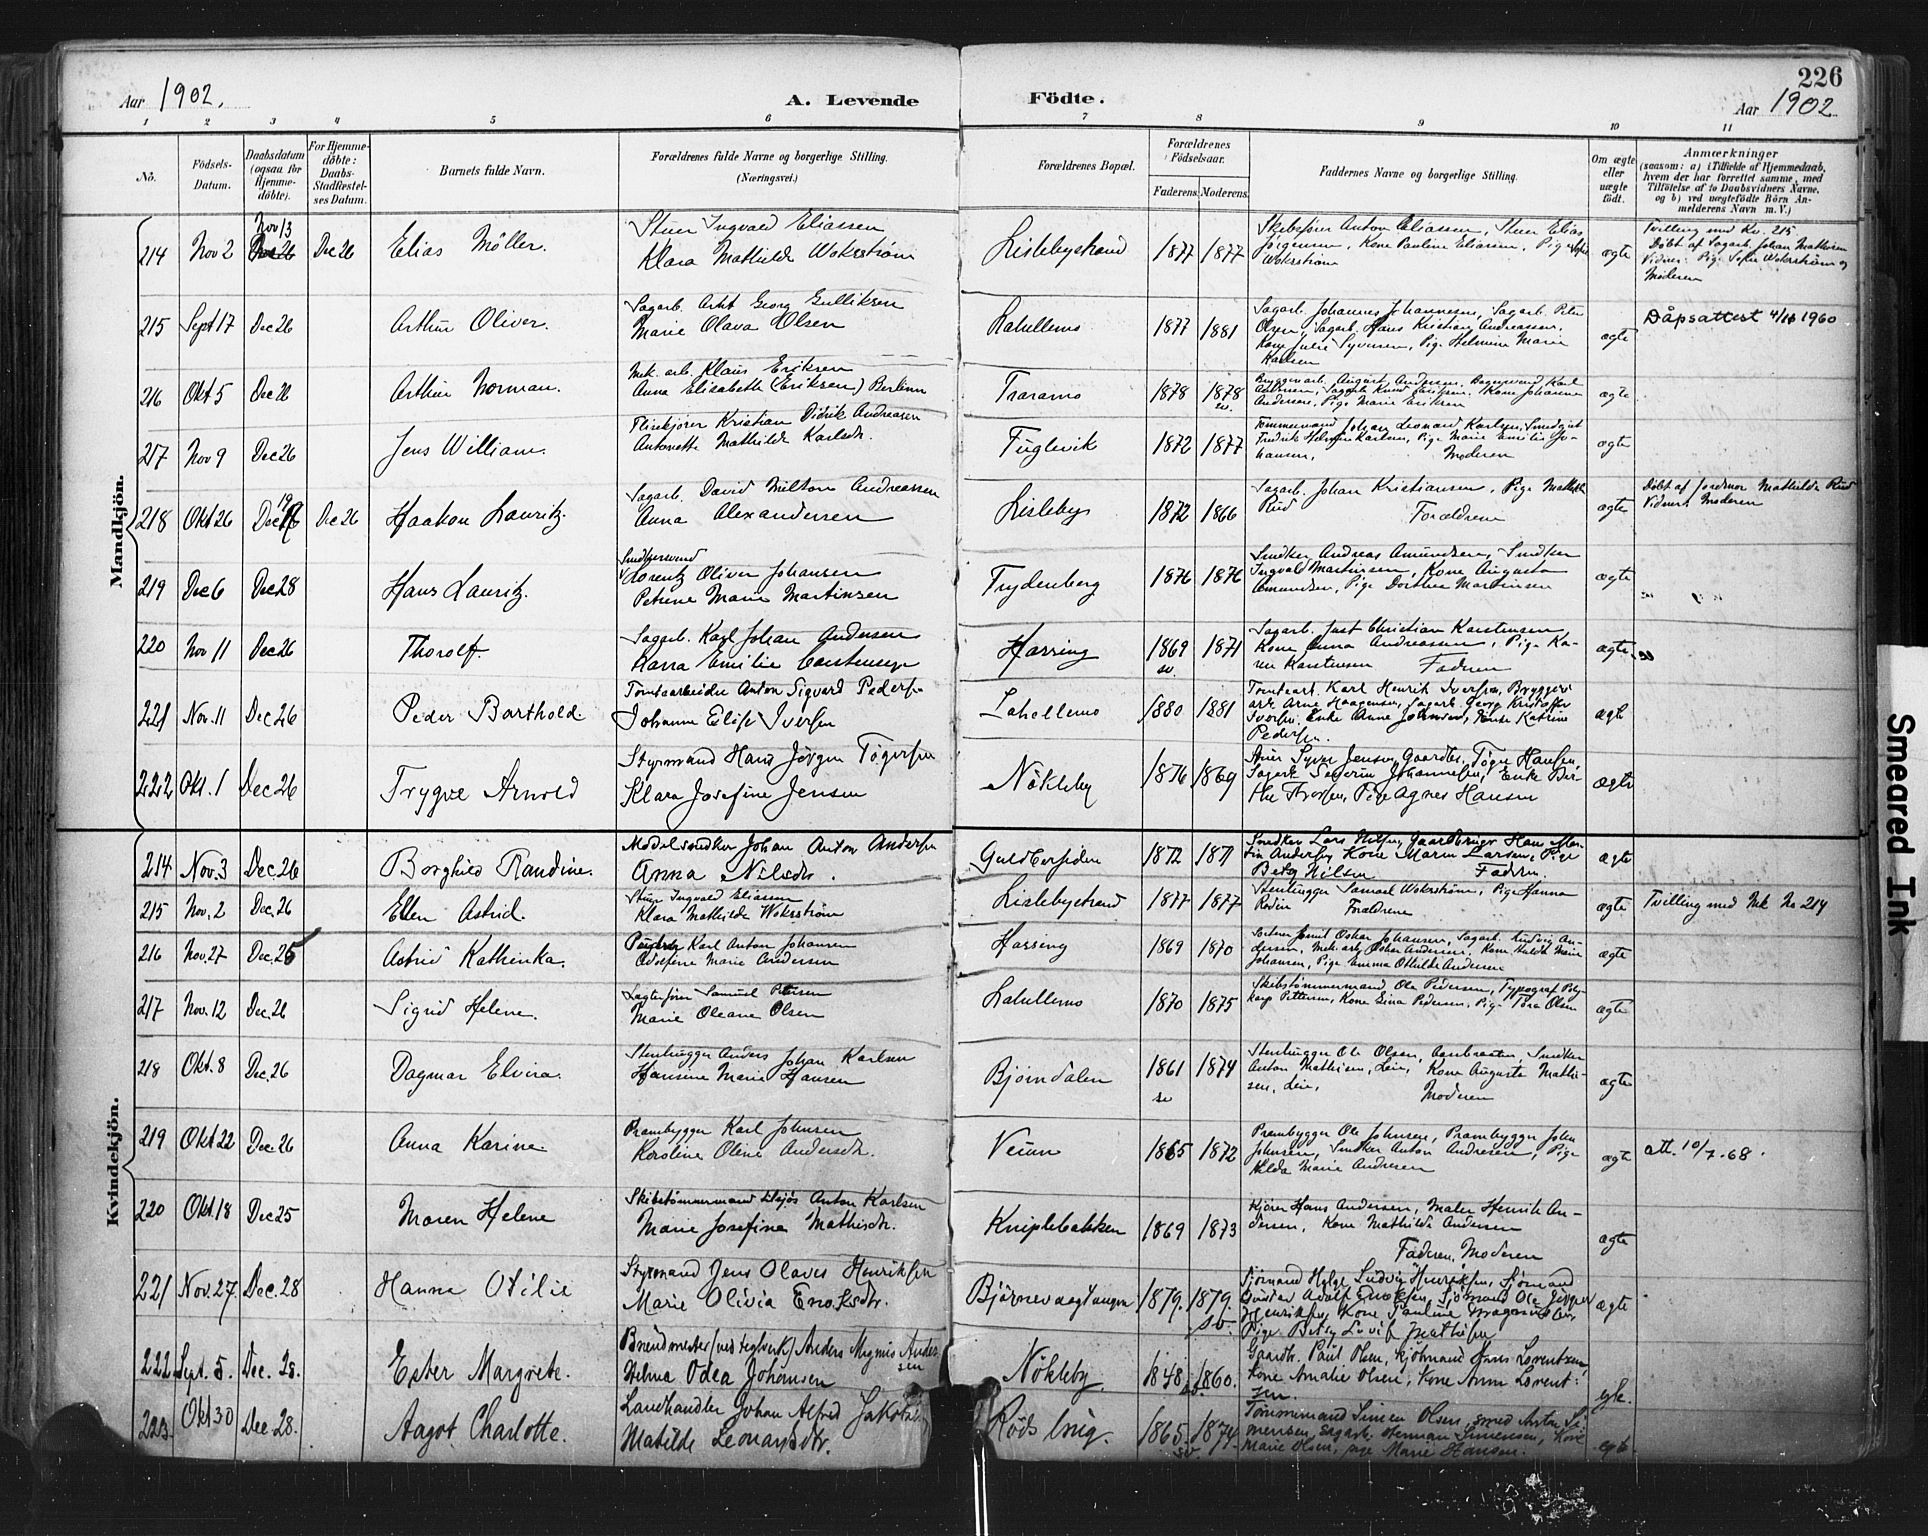 226
Aar 1902. A. Levende Födte. Aar 1902
1 2 3 4 5 6 7 8 9 10 11
No. Födsels-Datum. Daabsdatum (ogsaa for Hjemme-döbte). For Hjemme-döbte: Daabs-Stadfæstel-ses Datum. Barnets fulde Navn. Forældrenes fulde Navne og borgerlige Stilling. (Næringsvei.) Forældrenes Bopæl. Forældrenes Födselsaar. Faderens Moderens. Faddernes Navne og borgerlige Stilling. Om ægte eller uægte födt. Anmærkninger (saasom: a) i Tilfælde af Hjemmedaab, hvem der har forrettet samme, med Tilföielse af to Daabsvidners Navne, og b) ved uægtefödte Börn An-melderens Navn m. V.)
Mandkjön.
214 Nov 2 Nov 13 Dec 26 Elias Möller. Stuer Ingvald Eliassen
Klara Mathilde Wokström Lislebystrand 1877 1877 Skibsförer Anton Eliassen, Stuer Elias
Jörgensen, Kone Pauline Eliassen, Pige Sofie
Wokström ægte Tvilling med Kv. 215
Döbt af Sagarb. Johan Mathisen
Vidner: Pige Sofie Wokström og
Moderen
215 Sept 17 Dec 26 Arthur Oliver. Sagarb. Georg Gulliksen
Marie Olava Olsen Lahellemo 1877 1881 Sagarb. Johannes Johannesen, Sagarb. Peter
Olsen, Sagarb. Hans Kristian Andreassen,
Kone Julie Syversen, Pige Helmine Marie
Karlsen ægte Dåpsattest 1960
216 Okt 5 Dec 26 Arthur Norman. Mek. arb. Klaus Eriksen
Anna Elisabeth (Eriksen) Traramo 1878 1878
sv. Bryggeriarb. August Andersen, Karl
Kone Johanne
Andersen, Pige Marie Eriksen ægte
217 Nov 9 Dec 26 Jens William. Kristian Didrik Andreasen
Antonette Mathilde Karlsdr. Fuglevik 1872 1877 Tömmermand Johan Leonard Karlsen,
Fredrik Karlsen, Pige Marie Emilie Jo-
hansen, Moderen ægte
218 Okt 26 Dec 19 Dec 26 Haakon Lauritz. Sagarb. David Milton Andreassen
Anna Alexandersen Lisleby 1872 1866 Sagarb. Johan Kristiansen, Pige Mathilde
Rud Forældrene ægte Döbt af Jordmor Mathilde Rud
Vidner: Moderen
219 Dec 6 Dec 28 Hans Lauritz. Snedkersvend
Lorentz Oliver Johansen
Petrine Marie Martinsen Frydenberg 1876 1876 Snedker Andreas Amundsen, Snedker
Ingvald Martinsen, Kone Augusta
Amundsen, Pige Dorthea Martinsen ægte
220 Nov 11 Dec 26 Thorolf. Sagarb. Karl Johan Andersen
Karra Emilie Carstensen Hassing 1869
sv. 1871 Sagarb. Just Christian Karstensen,
Kone Anna Andreassen, Pige Ka-
ren Karstensen Faderen ægte
221 Nov. 11 Dec 26 Peder Barthold Tomtearbeider Anton Sigvard Pedersen
Johanne Elise Iversen Lahellemo 1880 1881 Tomtearb. Karl Henrik Iversen, Bryggeri
arb. Arne Haagensen, Sagarb. Georg Kristoffer
Iversen, Enke Anne Johnsen, Enke Katrine
Pedersen. ægte
222 Okt. 1 Dec 26 Trygve Arnold Styrmand Hans Jörgen Tögersen
Klara Josefine Jensen Nökleby 1876 1869 Stuer Syver Jensen, Gaardbr. Töger Hansen,
Sagarb. Severin Johannesen, Enke Ber-
the Thorsen, Pige Agnes Hansen ægte
Kvindekjön.
214 Nov. 3 Dec. 26 Borghild Randine. Modelsnedker Johan Anton Andersen
Anna Nilsdr. Guldbersiden 1872 1871 Snedker Lars Nilsen, Gaardbruger Hans Mar-
tin Andersen, Kone Maren Larsen, Pige
Betsy Nilsen Faderen. ægte
215 Nov. 2 Dec. 26 Ellen Astrid. Stuer Ingvald Eliassen
Klara Mathilde Wokström Lislebystrand 1877 1877 Stenhugger Samuel Wokström, Pige Hanna
Rodin Forældrene ægte Tvilling med Mk No 214
216 Nov. 27 Dec. 25 Astrid Kathinka. Karl Anton Johansen
Adolfine Marie Andersen Hassing 1869 1870 Emil Oskar Johansen, Sagarb. Ludvig An-
dersen, Mek. arb. Oskar Andersen, Kone Hulda Marie
Johansen, Pige Emma Othilde Andersen ægte
217 Nov. 12 Dec. 26 Sigrid Helene. Samuel Petersen
Marie Oleane Olsen Lahellemo 1870 1875 Skibstömmermand Ole Pedersen, Typograf Poly-
karp Pettersen, Kone Lina Pedersen, Pige Tora Olsen ægte
218 Okt. 8 Dec. 26 Dagmar Elvira. Stenhugger Anders Johan Karlsen
Hansine Marie Hansen Björndalen 1861
sv 1874 Stenhugger Ole Olsen, Aanbraaten, Snedker
Anton Mathisen, Leie, Kone Augusta Mathi-
sen, Leie, Moderen ægte
219 Okt. 22 Dec. 26 Anna Karine Prambygger Karl Johnsen
Karoline Oline Andersdr. Veum 1865 1872 Prambygger Ole Johnsen, Prambygger John
Johnsen, Snedker Anton Andresen, Pige
Hilda Marie Andresen ægte att. 10/7. 68.
220 Okt. 18 Dec 25 Maren Helene Skibstömmermand Anton Karlsen
Marie Josefine Mathisdr. Kniplebakken 1869 1873 Kjörer Hans Andersen, Maler Henrik An-
dersen, Kone Mathilde Andersen
Faderen, Moderen ægte
221 Nov. 27 Dec. 28 Hanna Otilie Styrmand Jens Olaves Henriksen
Marie Olivia Enoksdr. Björnevaagtangen 1879. 1879.
sv. Sjömand Helge Ludvig Henriksen, Sjömand
Gustav Adolf Enoksen, Sjömand Ole Jörgen
Henriksen, Kone Pauline
Pige Betsy Mathisen ægte
222 Sept. 5. Dec. 28. Ester Margrete. Brendmester (ved teglverk) Anders Magnus Ander-
sen
Helma Odea Johansen Nökleby. 1848.
sv. 1860. Gaardbr. Paul Olsen, Kjöbmand Hans Lorentzen,
Kone Amalie Olsen, Kone Anna Lorent-
zen. egte.
223. Okt 30 Dec 28. Aagot Charlotte. Landhandler Johan Alfred Jakobsen
Matilde Leonardsdr. Röds brug. 1865.
sv. 1874. Tömmermand Simen Olsen, smed Anton Si-
mensen, sagarb. Herman Simensen, Kone
Marie Olsen, pige Marie Hansen. egte
Smeared Ink